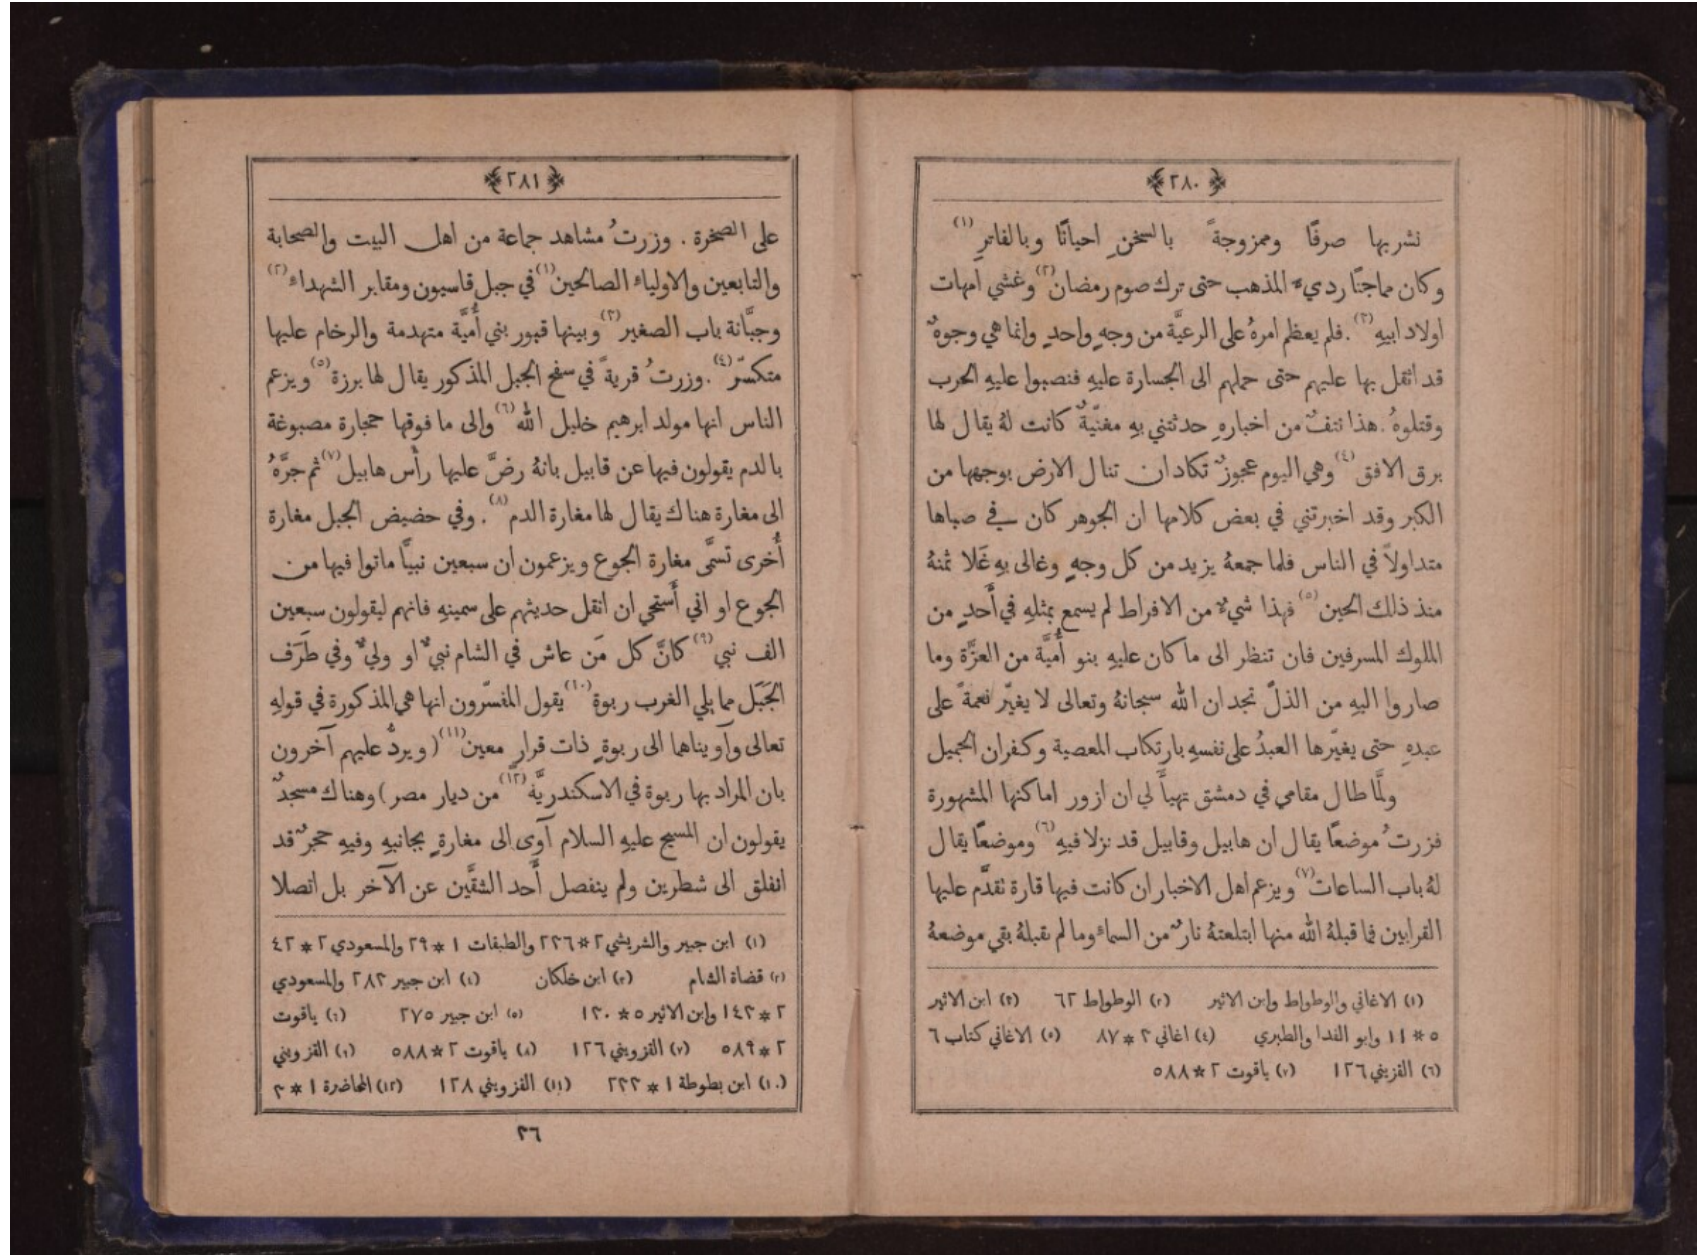 ﴿٢٨٠﴾
نشربها صرفًا وممزوجةً بالسخنِ احيانًا وبالفاترِ (١)
وكان مماجنًا رديءَ المذهب حتى ترك صوم رمضان (٢) وغشي امهات
اولاد ابيهِ (٣) . فلم يعظم امرهُ على الرعيَّة من وجهٍ واحدٍ وانما هي وجوهٌ
قد اثقل بها عليهم حتى حملهم الى الجسارة عليهِ فنصبوا عليهِ الحرب
وقتلوهُ . هذا نتفٌ من اخبارهِ حدثتني بهِ مغنّيةٌ كانت لهُ يقال لها
برق الافق (٤) وهي اليوم عجوزٌ تكاد ان تنال الارض بوجهها من
الكبر وقد اخبرتني في بعض كلامها ان الجوهر كان في صباها
متداولاً في الناس فلما جمعهُ يزيد من كل وجهٍ وغالى بهِ غَلا ثمنهُ
منذ ذلك الحين (٥) فهذا شيءٌ من الافراط لم يسمع بمثلهِ في أَحدٍ من
الملوك المسرفين فان تنظر الى ما كان عليهِ بنو أُميَّة من العزَّة وما
صاروا اليهِ من الذلّ تجد ان الله سبحانهُ وتعالى لا يغيّر نعمةً على
عبدهِ حتى يغيّرها العبدُ على نفسهِ بارتكاب المعصية وكفران الجميل
ولمَّا طال مقامي في دمشق تهيأَ لي ان ازور اماكنها المشهورة
فزرتُ موضعًا يقال ان هابيل وقابيل قد نزلا فيهِ (٦) وموضعًا يقال
لهُ باب الساعات (٧) ويزعم اهل الاخبار ان كانت فيها قارة تقدَّم عليها
القرابين فما قبلهُ الله منها ابتلعتهُ نارٌ من السماء وما لم يقبلهُ بقي موضعهُ
(١) الاغاني والوطواط وابن الاثير (٢) الوطواط ٦٢ (٣) ابن الاثير
٥ * ١١ وابو الفدا والطبري (٤) اغاني ٣ * ٨٧ (٥) الاغاني كتاب ٦
(٦) القزيني ١٢٦ (٧) ياقوت ٢ * ٥٨٨
﴿٢٨١﴾
على الصخرة . وزرتُ مشاهد جماعة من اهل البيت والصحابة
والتابعين والاولياء الصالحين (١) في جبل قاسيون ومقابر الشهداء (٢)
وجبَّانة باب الصغير (٣) وبينها قبور بني أُميَّة متهدمة والرخام عليها
متكسّر (٤) . وزرتُ قريةً في سفح الجبل المذكور يقال لها برزة (٥) ويزعم
الناس انها مولد ابرهيم خليل الله (٦) والى ما فوقها حجارة مصبوغة
بالدم يقولون فيها عن قابيل بانهُ رضَّ عليها رأس هابيل (٧) ثم جرَّهُ
الى مغارة هناك يقال لها مغارة الدم (٨) . وفي حضيض الجبل مغارة
أُخرى تسمَّى مغارة الجوع ويزعمون ان سبعين نبيًّا ماتوا فيها من
الجوع او اني أَستحي ان انقل حديثهم على سمينهِ فانهم ليقولون سبعين
الف نبي (٩) كانَّ كل مَن عاش في الشام نبيٌّ او وليٌّ وفي طَرَف
الجَبَل مما يلي الغرب ربوة (١٠) يقول المفسّرون انها هي المذكورة في قولهِ
تعالى وآويناهما الى ربوةٍ ذات قرارٍ معين (١١) (ويردُّ عليهم آخرون
بان المراد بها ربوة في الاسكندريَّة (١٢) من ديار مصر) وهناك مسجدٌ
يقولون ان المسيح عليهِ السلام آوى الى مغارةٍ بجانبهِ وفيهِ حجرٌ قد
انفلق الى شطرين ولم ينفصل أَحد الشقَّين عن الآخر بل اتصلا
(١) ابن جبير والشريشي ٢ * ٢٢٦ والطبقات ١ * ٢٩ والمسعودي ٢ * ٤٢
(٢) قضاة الشام (٣) ابن خلكان (٤) ابن جبير ٢٨٢ والمسعودي
٢ * ١٤٣ وابن الاثير ٥ * ١٣٠ (٥) ابن جبير ٢٧٥ (٦) ياقوت
٢ * ٥٨٩ (٧) القزويني ١٢٦ (٨) ياقوت ٢ * ٥٨٨ (٩) القزويني
(١٠) ابن بطوطة ١ * ٢٣٣ (١١) القزويني ١٢٨ (١٢) المحاضرة ١ * ٣
٣٦